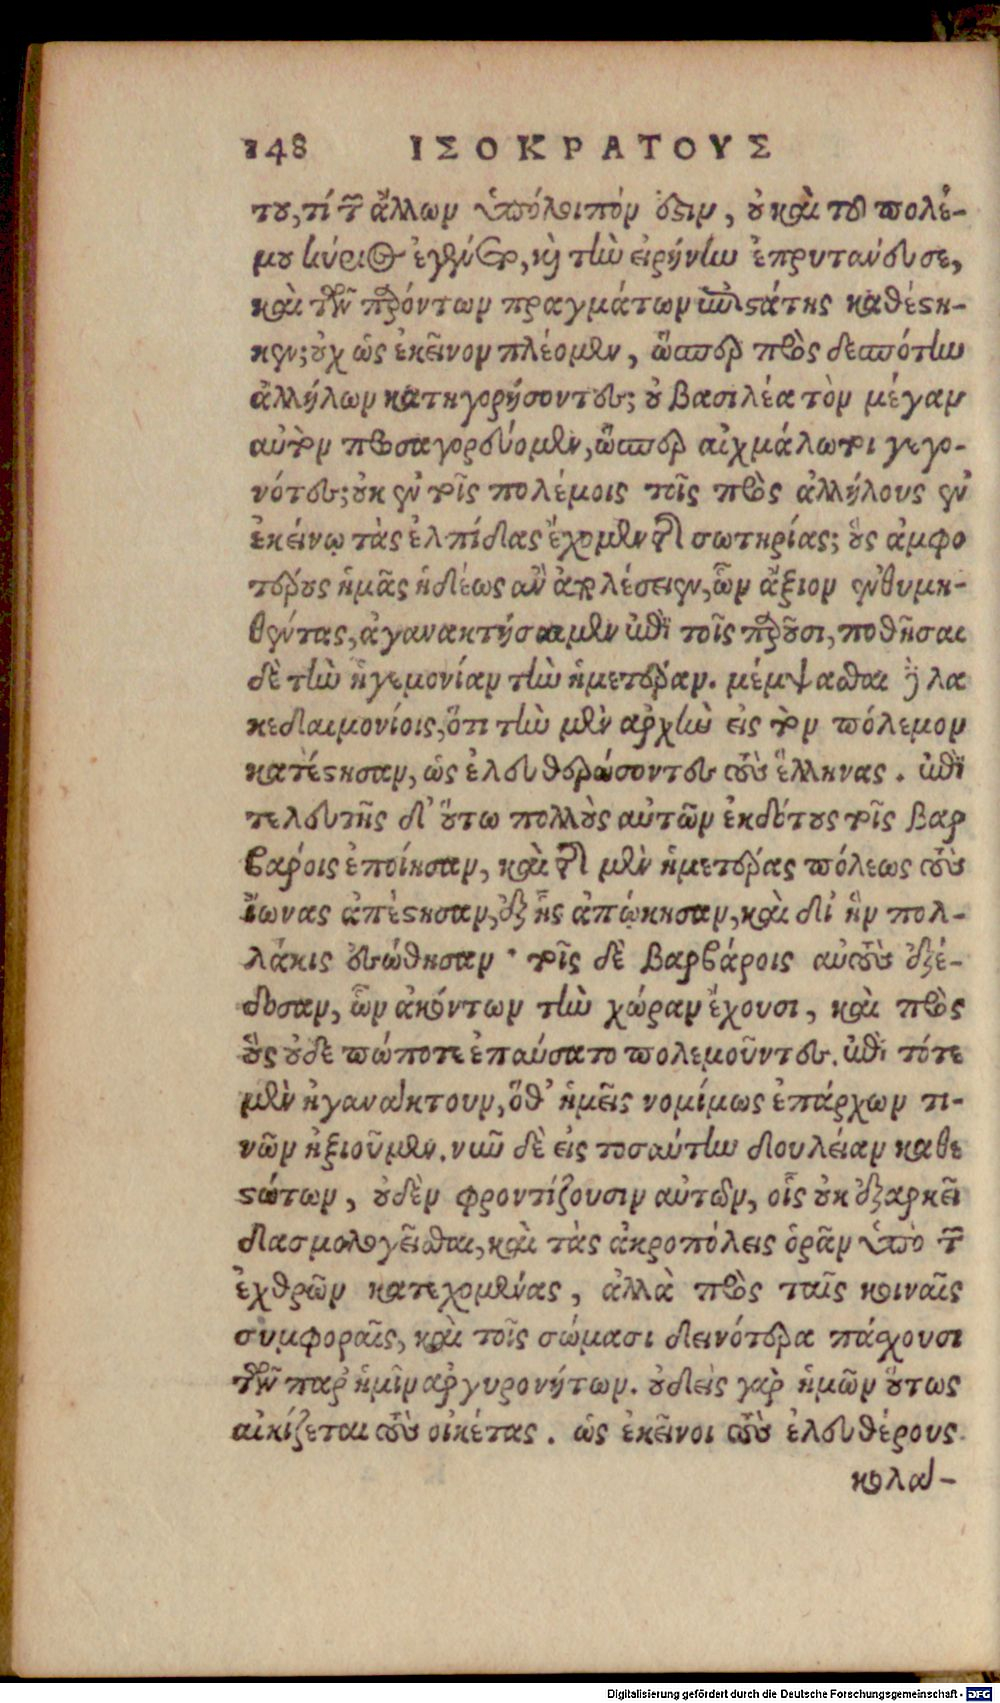 148 ΙΣΟΚΡΑΤΟΥΣ
του, τί τῶν ἄλλων ὑπόλοιπόν ἐστιν, οὐ καὶ τοῦ πολέ-
μου κύριος ἐγένετο, καὶ τὴν εἰρήνην ἐπρυτάνευσε,
καὶ τῶν παρόντων πραγμάτων ἐπιστάτης καθέστη-
κεν; οὐχ ὡς ἐκεῖνον πλέομεν, ὥσπερ πρὸς δεσπότην
ἀλλήλων κατηγορήσοντες; οὐ βασιλέα τὸν μέγαν
αὐτὸν προσαγορεύομεν, ὥσπερ αἰχμάλωτοι γεγο-
νότες; οὐκ ἐν τοῖς πολέμοις τοῖς πρὸς ἀλλήλους ἐν
ἐκείνῳ τὰς ἐλπίδας ἔχομεν τῆς σωτηρίας; ὃς ἀμφο
τέρους ἡμᾶς ἡδέως ἂν ἀπολέσειεν, ὧν ἄξιον ἐνθυμη-
θέντας, ἀγανακτῆσαι μὲν ἐπὶ τοῖς παροῦσι, ποθῆσαι
δὲ τὴν ἡγεμονίαν τὴν ἡμετέραν. μέμψασθαι δὲ λα
κεδαιμονίοις, ὅτι τὴν μὲν ἀρχὴν εἰς τὸν πόλεμον
κατέστησαν, ὡς ἐλευθερώσοντες τοὺς ἕλληνας. ἐπὶ
τελευτῆς δ' οὕτω πολλοὺς αὐτῶν ἐκδότους τοῖς βαρ
βάροις ἐποίησαν, καὶ τῆς μὲν ἡμετέρας πόλεως τοὺς
ἴωνας ἀπέστησαν, ἐξ ἧς ἀπῴκησαν, καὶ δι' ἣν πολ-
λάκις ἐσώθησαν· τοῖς δὲ βαρβάροις αὐτοὺς ἐξέ-
δοσαν, ὧν ἀκόντων τὴν χώραν ἔχουσι, καὶ πρὸς
οὓς οὐδὲ πώποτε ἐπαύσατο πολεμοῦντες. ἐπὶ τότε
μὲν ἠγανάκτουν, ὅθ' ἡμεῖς νομίμως ἐπάρχων τι-
νῶν ἠξιοῦμεν. νῦν δὲ εἰς τοσαύτην δουλείαν καθε
στώτων, οὐδὲν φροντίζουσιν αὐτῶν, οἷς οὐκ ἐξαρκεῖ
δασμολογεῖσθαι, καὶ τὰς ἀκροπόλεις ὁρᾶν ὑπὸ τῶν
ἐχθρῶν κατεχομένας, ἀλλὰ πρὸς ταῖς κοιναῖς
συμφοραῖς, καὶ τοῖς σώμασι δεινότερα πάσχουσι
τῶν παρ' ἡμῖν ἀργυρονήτων. οὐδεὶς γὰρ ἡμῶν οὕτως
αἰκίζεται τοὺς οἰκέτας. ὡς ἐκεῖνοι τοὺς ἐλευθέρους
κολά-
Digitalisierung gefördert durch die Deutsche Forschungsgemeinschaft - DFG